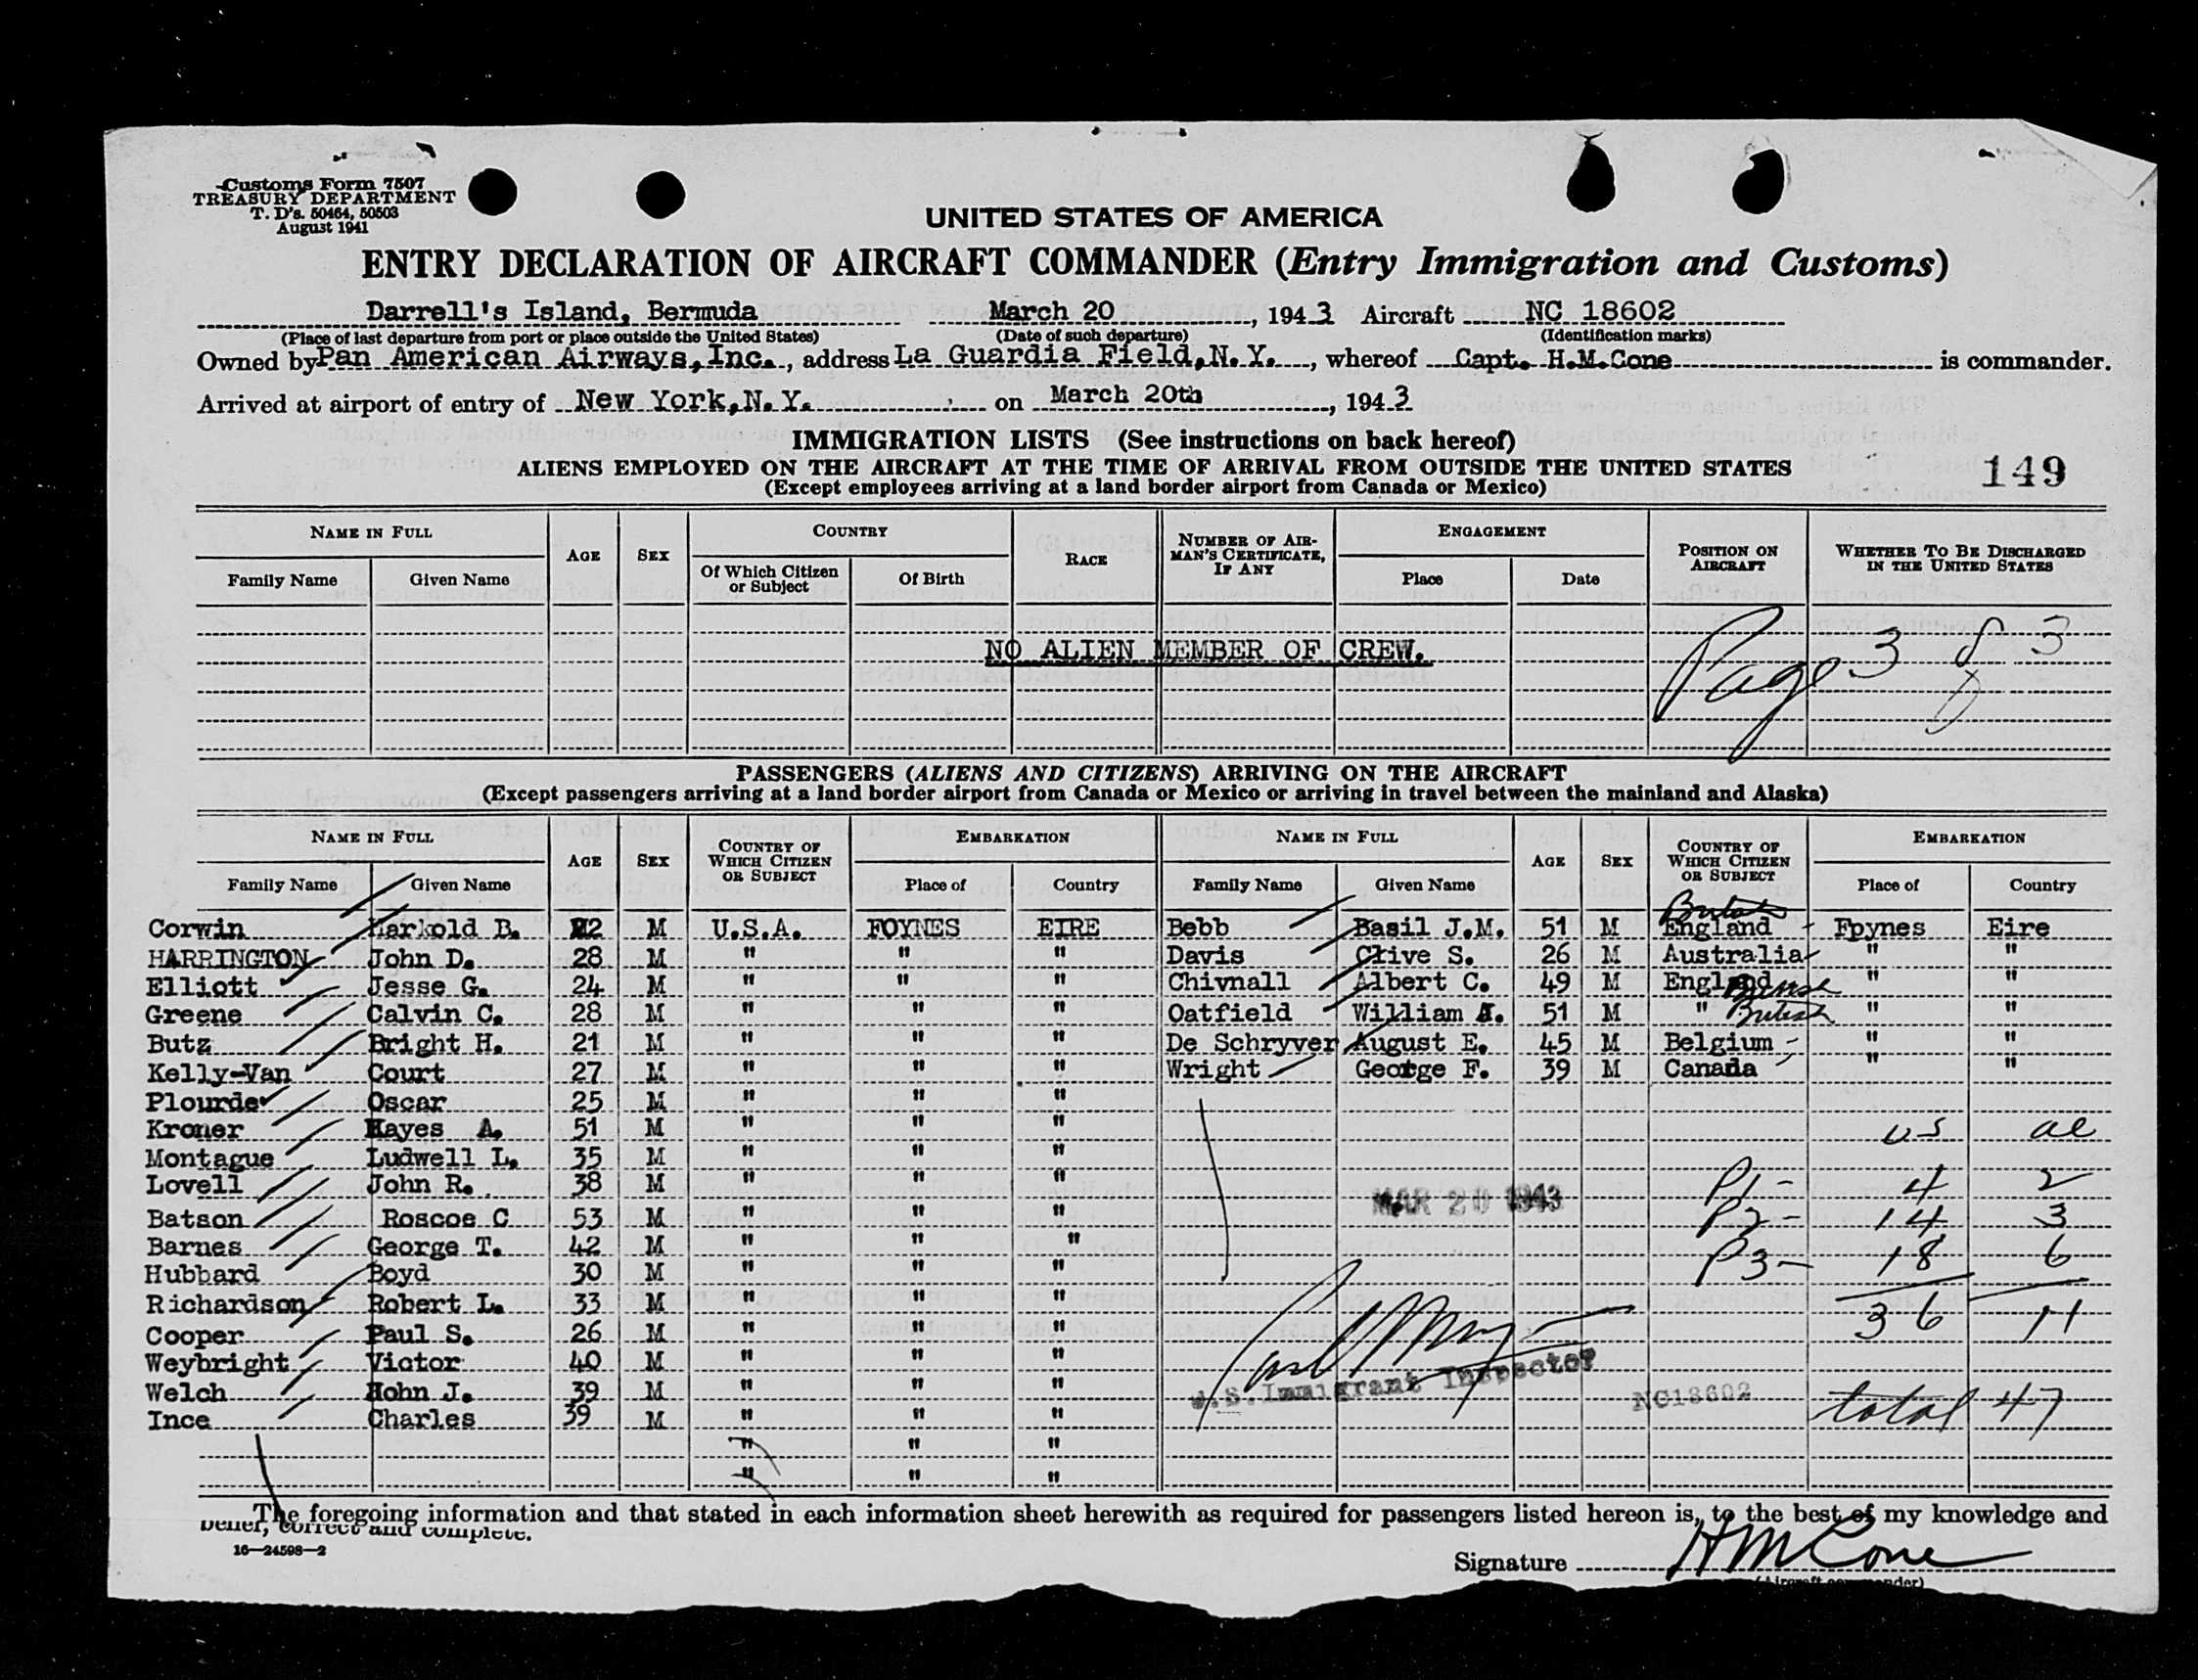 Customs Form 7507
TREASURY DEPARTMENT
T. D's. 50464, 50503
August 1941
UNITED STATES OF AMERICA
ENTRY DECLARATION OF AIRCRAFT COMMANDER (Entry Immigration and Customs)
Darrell's Island, Bermuda March 20, 1943 Aircraft NC 18602
(Place of last departure from port or place outside the United States) (Date of such departure) (Identification marks)
Owned by Pan American Airways, Inc., address La Guardia Field, N. Y., whereof Capt. H.M.Cone is commander.
Arrived at airport of entry of New York, N. Y. on March 20th, 1943
IMMIGRATION LISTS (See instructions on back hereof)
ALIENS EMPLOYED ON THE AIRCRAFT AT THE TIME OF ARRIVAL FROM OUTSIDE THE UNITED STATES
149
(Except employees arriving at a land border airport from Canada or Mexico)
NAME IN FULL AGE SEX COUNTRY RACE NUMBER OF AIRMAN'S CERTIFICATE, IF ANY ENGAGEMENT POSITION ON AIRCRAFT WHETHER TO BE DISCHARGED IN THE UNITED STATES
Family Name Given Name Of Which Citizen or Subject Of Birth Place Date
NO ALIEN MEMBER OF CREW.
Page 3 of 3
PASSENGERS (ALIENS AND CITIZENS) ARRIVING ON THE AIRCRAFT
(Except passengers arriving at a land border airport from Canada or Mexico or arriving in travel between the mainland and Alaska)
NAME IN FULL AGE SEX COUNTRY OF WHICH CITIZEN OR SUBJECT EMBARKATION NAME IN FULL AGE SEX COUNTRY OF WHICH CITIZEN OR SUBJECT EMBARKATION
Family Name Given Name Place of Country Family Name Given Name Place of Country
British
Corwin Harkold B. 22 M U.S.A. FOYNES EIRE Bebb Basil J.M. 51 M England Fpynes Eire
HARRINGTON John D. 28 M " " " Davis Clive S. 26 M Australia " "
Elliott Jesse G. 24 M " " " Chivnall Albert C. 49 M England British " "
Greene Calvin C. 28 M " " " Oatfield William J. 51 M " British " "
Butz Bright H. 21 M " " " De Schryver August E. 45 M Belgium " "
Kelly-Van Court 27 M " " " Wright George F. 39 M Canada " "
Plourde Oscar 25 M " " "
Kroner Hayes A. 51 M " " " US al
Montague Ludwell L. 35 M " " "
Lovell John R. 38 M " " " P1- 4 2
MAR 20 1943
Batson Roscoe C 53 M " " " P2- 14 3
Barnes George T. 42 M " " " P3- 18 6
Hubbard Boyd 30 M " " "
Richardson Robert L. 33 M " " " 36 11
Cooper Paul S. 26 M " " "
Weybright Victor 40 M " " "
U.S. Immigrant Inspector
Welch John J. 39 M " " " NC18602 total 47
Ince Charles 39 M " " "
" " "
" " "
The foregoing information and that stated in each information sheet herewith as required for passengers listed hereon is, to the best of my knowledge and
belief, correct and complete.
16—24598—2
Signature HM Cone
(Aircraft commander)